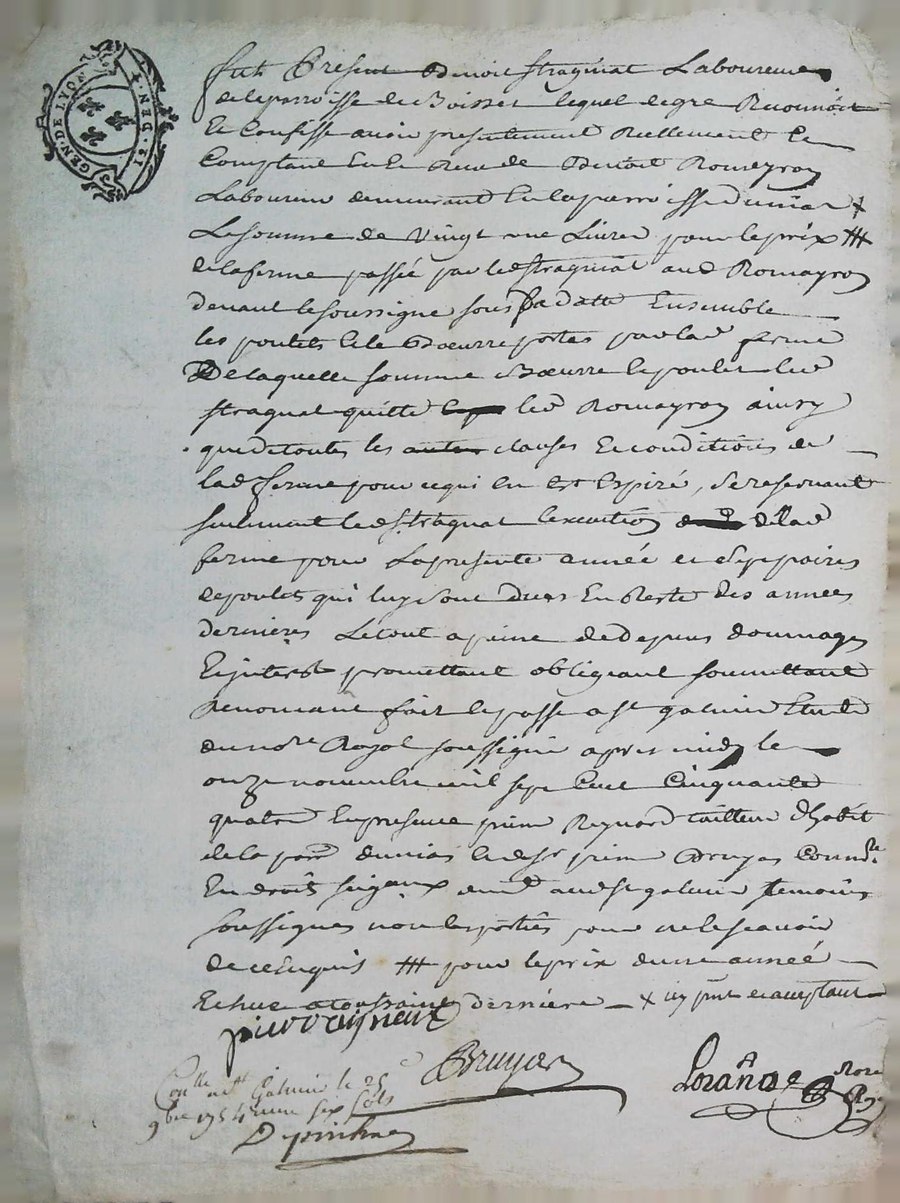 GEN. DE LYON
13. DEN.
fut Present Benoit Stragniat Laboureur
de la parroisse de Boisset lequel de gre Reconnoit
Et Confesse avoir presentement Reellement Et
Comptant Eu Et Receu de Benoit Romeyron
Laboureur demeurant En la parroisse d'unias ×
La somme de Vingt une Livres pour le prix #
de la ferme passée par led Stragniat aud Romayron
devant le soussigne sous sa datte Ensemble
les poulets Et le Bœurre portes par lad ferme
De laquelle somme Bœurre Et poulet led
Stragnat quitte led Romayron ainsy
que de toutes les clauses Et conditions de
lad ferme pour ce qui En Est Expiré, se reservant
seulement led Stragnat l'execution de lad
ferme pour La presente année et paires
de poulets qui luy sont Dues En Reste des années
dernieres Le tout a peine de Depens dommages
Et interest promettant obligeant soumettant
Renonceant fait Et passe a st galmier Etude
du no.re Royal soussigné apres midy le
onze novembre mil sept Cent Cinquante
quatre En presence pierre Reynard tailleur d'habit
de la parr d'unias Et de sr pierre Bruyas Comm.re
En droits seigaux dem.t aud st galmier temoins
soussignes non les parties pour ne le scavoir
de ce Enquis # pour le prix d'une année
Echue a toussaint derniere × icy pnt et acceptant
pierre reynard
Bruyas
Loranna No.re Ro.
Con.lle a st Galmier le 25
9bre 1754 Receu six sols